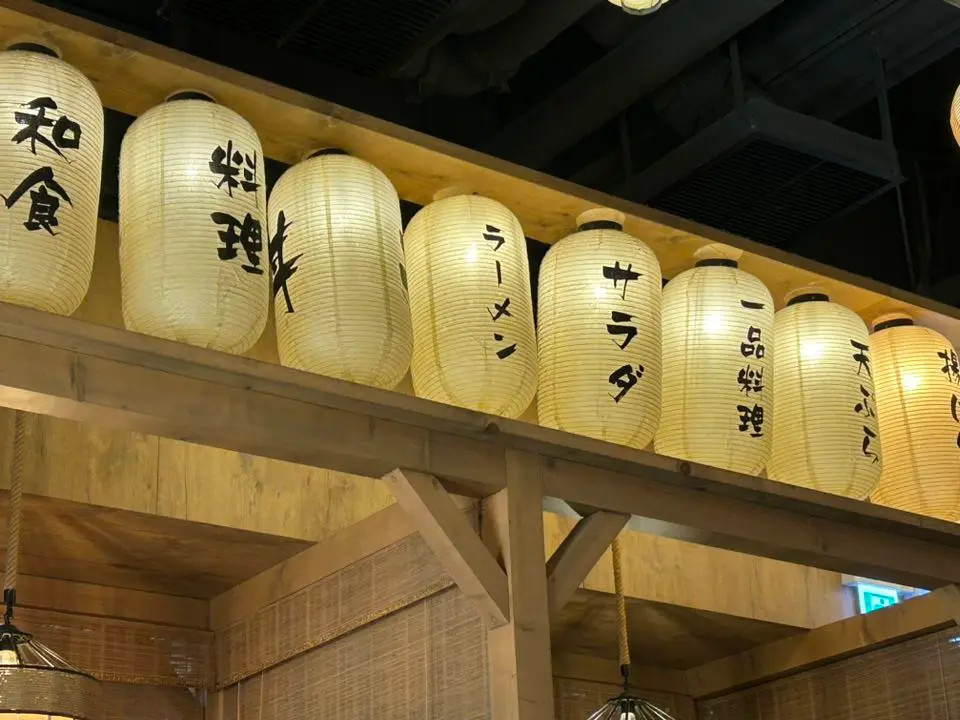 和食
料理
ラーメン
サラダ
一品料理
天ぷら
揚げ